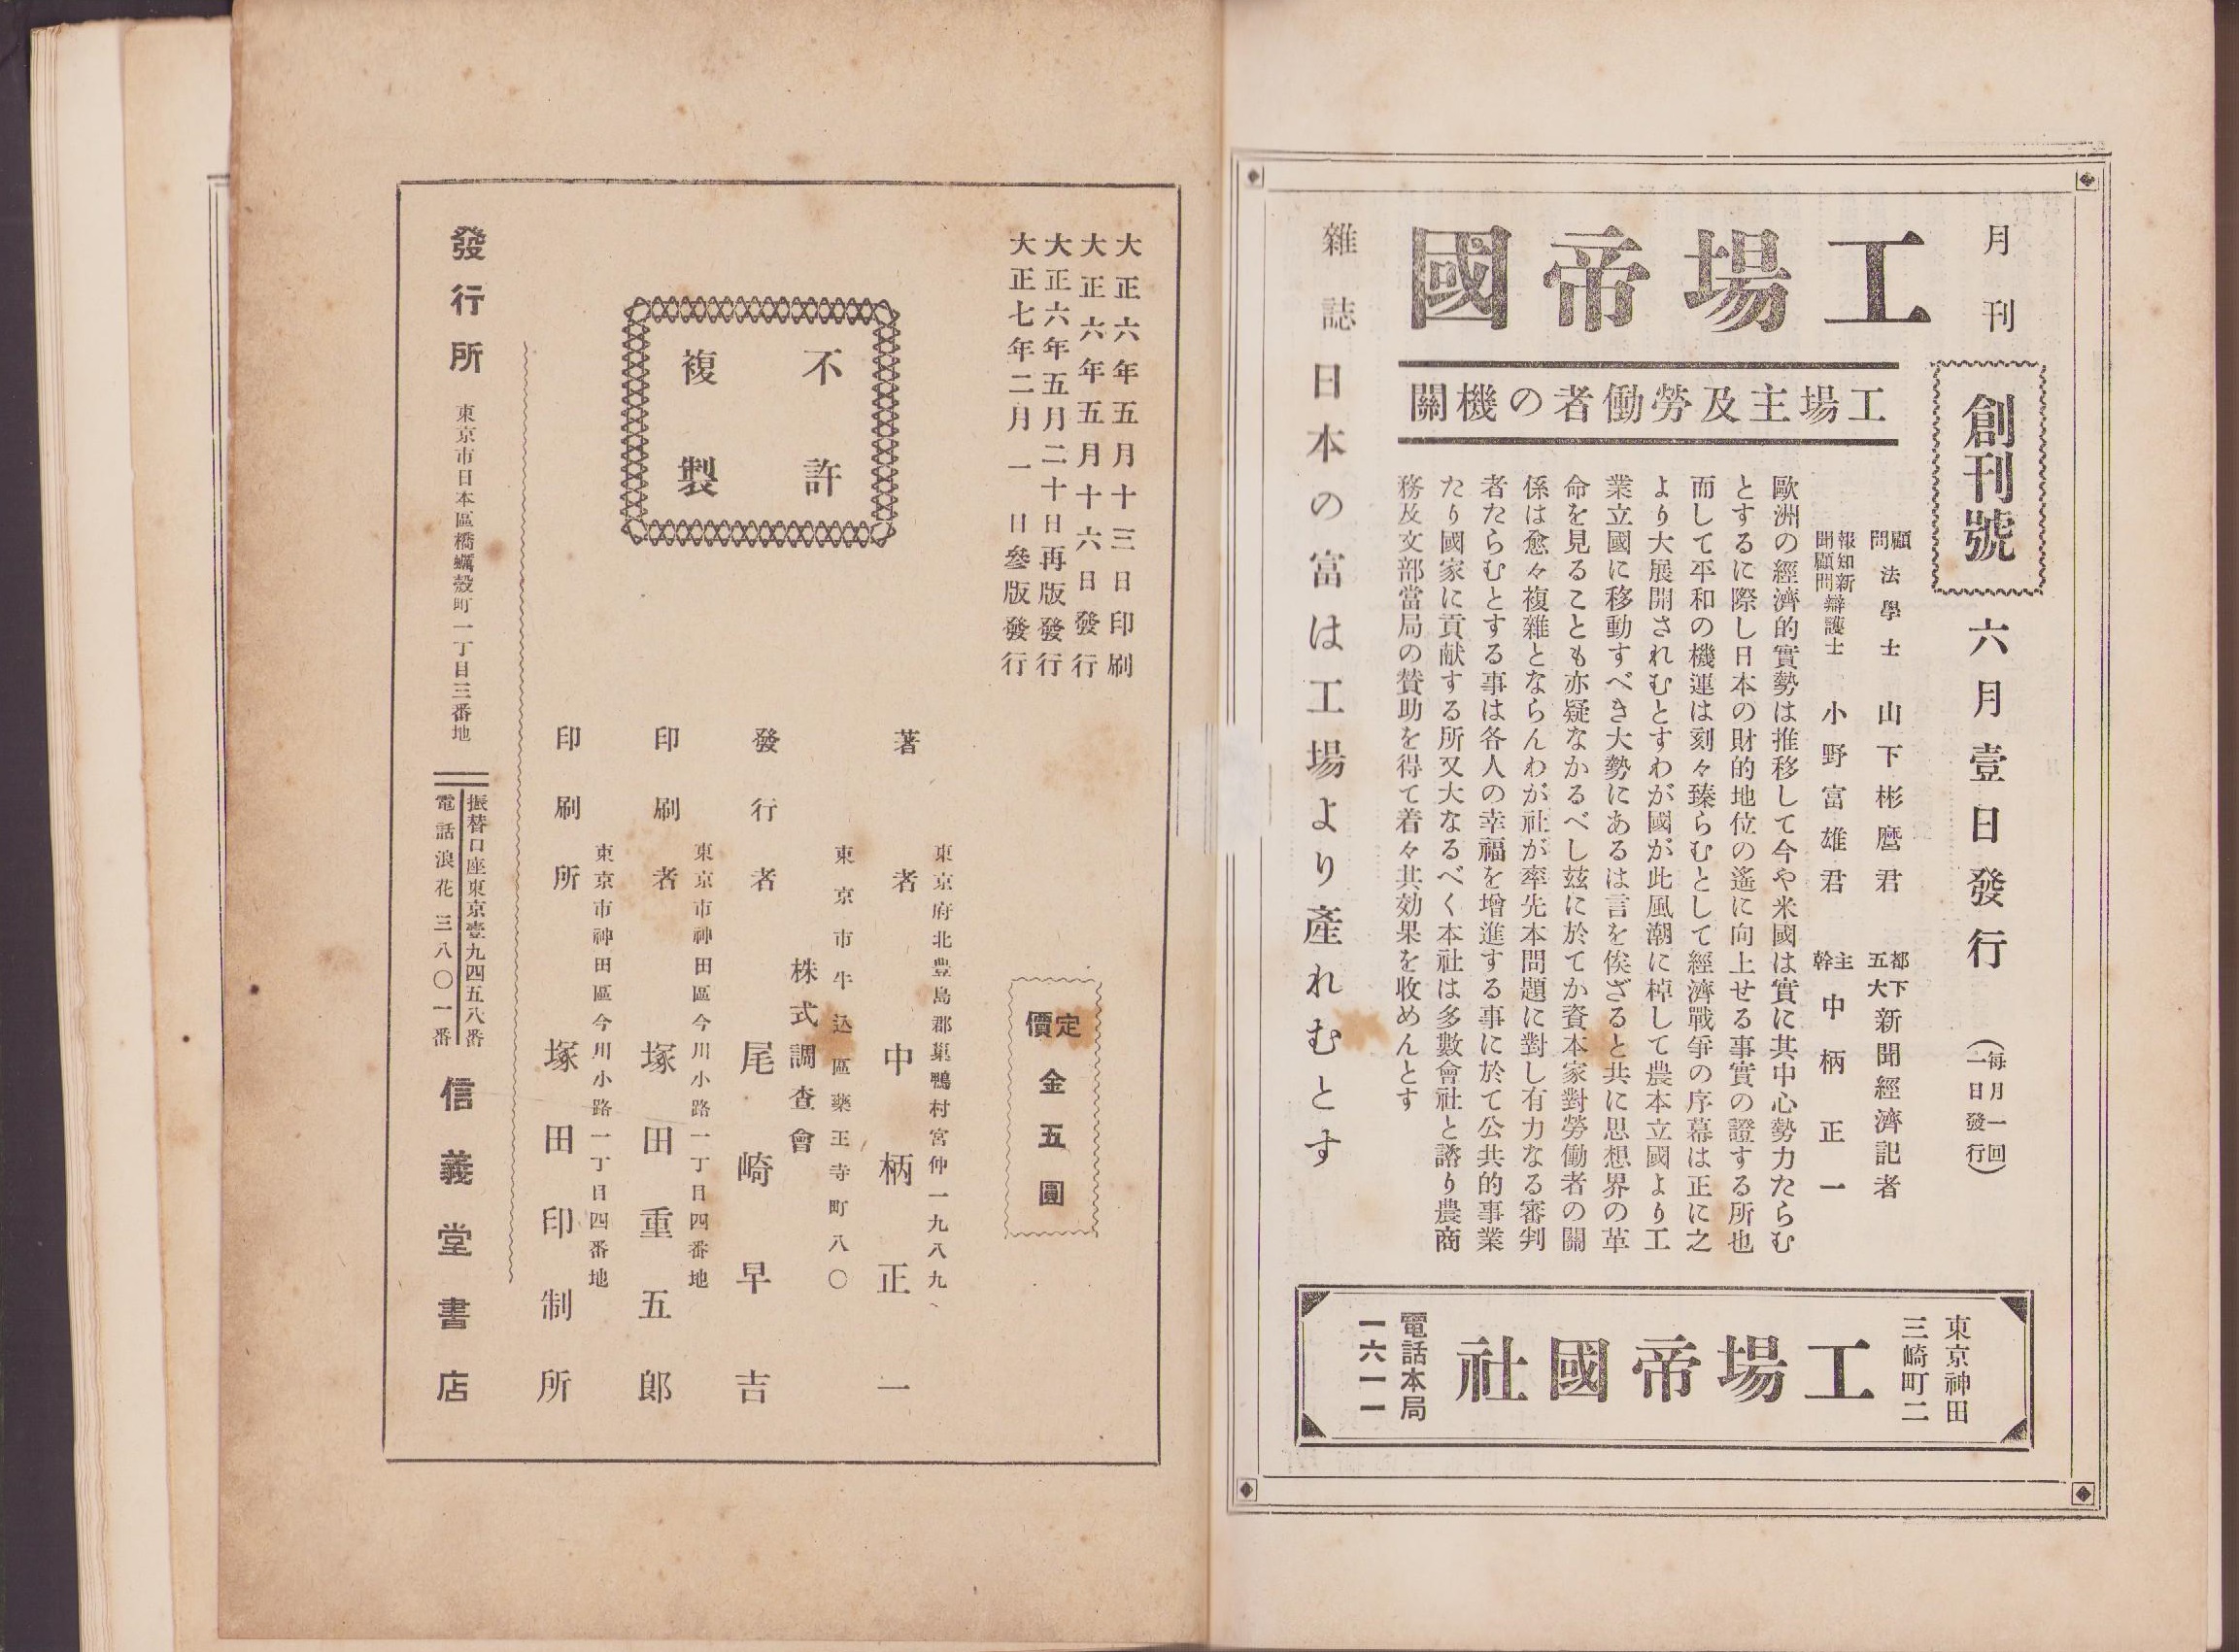 月刊
創刊號
六月壹日發行
(每月一回
一日發行)
工場帝國
工場主及勞働者の機關
顧問 法學士 山下彬麿君
報知新聞顧問 辯護士 小野富雄君
都下五大新聞經濟記者
主幹 中柄正一
歐洲の經濟的實勢は推移して今や米國は實に其中心勢力たらむ
とするに際し日本の財的地位の遙に向上せる事實の證する所也
而して平和の機運は刻々臻らむとして經濟戰爭の序幕は正に之
より大展開されむとすわが國が此風潮に棹して農本立國より工
業立國に移動すべき大勢にあるは言を俟ざると共に思想界の革
命を見ることも亦疑なかるべし玆に於てか資本家對勞働者の關
係は愈々複雜とならんわが社が率先本問題に對し有力なる審判
者たらむとする事は各人の幸福を增進する事に於て公共的事業
たり國家に貢献する所又大なるべく本社は多數會社と諮り農商
務及文部當局の贊助を得て着々共効果を收めんとす
雜誌
日本の富は工場より產れむとす
東京神田
三崎町二
工場帝國社
電話本局
一六一一
大正六年五月十三日印刷
大正六年五月十六日發行
大正六年五月二十日再版發行
大正七年二月一日參版發行
定價 金五圓
不許
複製
東京府北豐島郡巢鴨村宮仲一九八九、
著者 中柄正一
東京市牛込區藥王寺町八〇
株式調查會
發行者 尾崎早吉
東京市神田區今川小路一丁目四番地
印刷者 塚田重五郎
東京市神田區今川小路一丁目四番地
印刷所 塚田印制所
發行所
東京市日本區橋蠣殼町一丁目三番地
振替口座東京壹九四五八番
電話浪花三八〇一番
信義堂書店